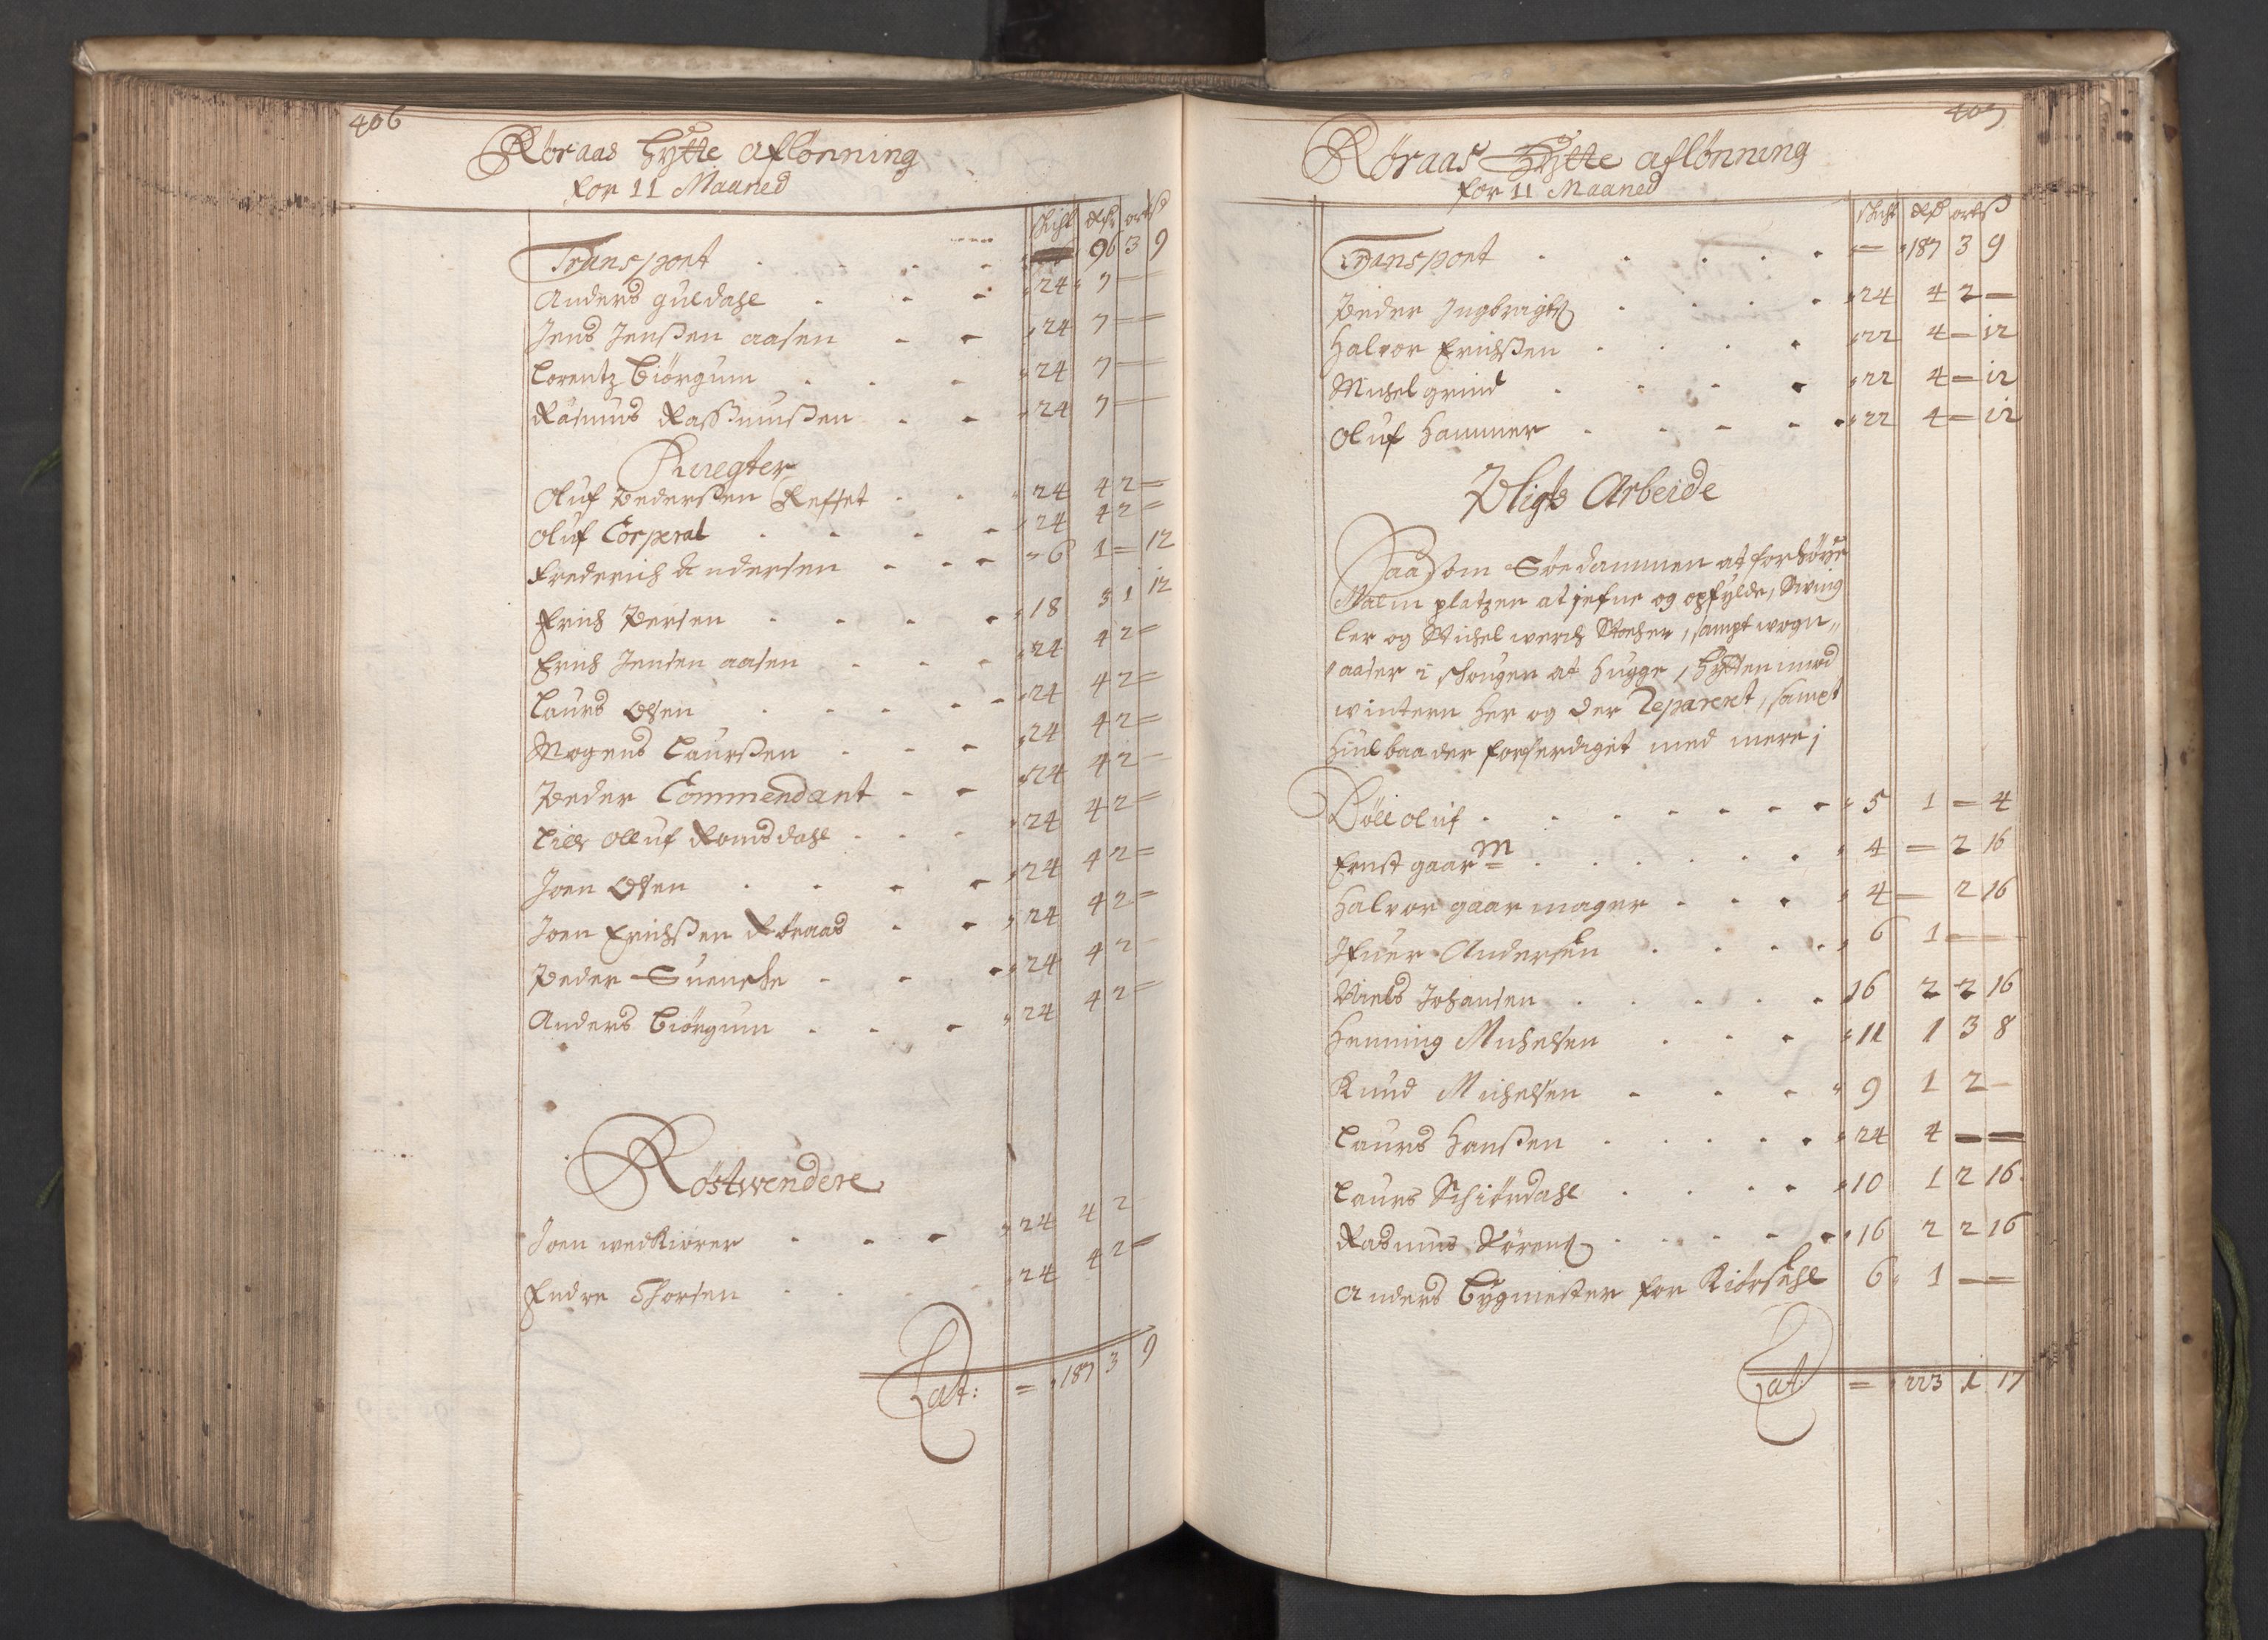 406
Röraas Hytte aflönning
for 11 Maaned
Schicht Rdr ort ß
Transport 96 3 9
Anders guldahl 24 7 —
Jens Jenßen aasen 24 7 —
Lorentz Biörgum 24 7 —
Rasmus Rassmusßen 24 7 —
Knegter
Oluf Pederßen Reffset 24 4 2 —
Oluf Corperal 24 4 2 —
Frederich Andersen 6 1 — 12
Erich Persen 18 3 1 12
Erich Jensen aasen 24 4 2 —
Laurs Olsen 24 4 2 —
Mogens Laurßen 24 4 2 —
Peder Commendant 24 4 2 —
Lille Olluf Romsdahl 24 4 2 —
Joen Olsen 24 4 2 —
Joen Erichßen Röraas 24 4 2 —
Peder Suensche 24 4 2 —
Anders Biörgum 24 4 2 —
Röstwendere
Joen wedkiörer 24 4 2
Endre Thorsen 24 4 2 —
Lat: — 187 3 9
407
Röraas Hytte aflönning
for 11 Maaned
Schicht Rdr ort ß
Transport — 187 3 9
Peder Ingbrigtß 24 4 2 —
Halvor Erichßen 22 4 — 12
Michel grind 22 4 — 12
Oluf Hammer 22 4 — 12
Wligts Arbeide
Saasom Söedammen at forhöye
Malm platzen at jefne og opfylde,
ler og Stichel werch Stocher, sampt wogn„
aaser i schougen at hugge, Hytten imod
wintern her og der Reparert, sampt
Hiulbaader forferdiget med mere;
Böll oluf 5 1 — 4
Ernst gaarm 4 — 2 16
Halvor gaarmager 4 — 2 16
Ifuer Andersen 6 1 —
Niels Johansen 16 2 2 16
Henning Michelsen 11 1 3 8
Knud Michelsen 9 1 2 —
Laurs Hanßen 24 4 — —
Laurs Schiördahl 10 1 2 16
Rasmus Sörenß 16 2 2 16
Anders Bygmester for Kiörsehl 6 1 — —
Lat: — 223 1 17